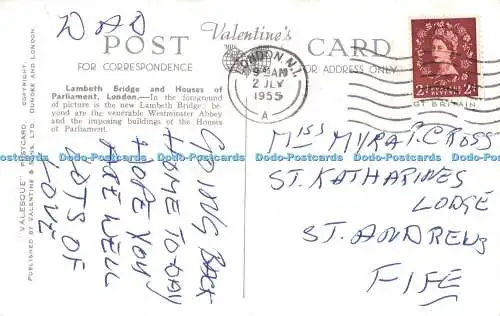 Valentine's
POST CARD
FOR CORRESPONDENCE
FOR ADDRESS ONLY
Lambeth Bridge and Houses of
Parliament, London.—In the foreground
of picture is the new Lambeth Bridge; be-
yond are the venerable Westminster Abbey
and the imposing buildings of the Houses
of Parliament.
"VALESQUE" POSTCARD. COPYRIGHT.
PUBLISHED BY VALENTINE & SONS LTD. DUNDEE AND LONDON.
LONDON, N.1.
AM
2 JLY
1955
A
2½D 2½D
GT BRITAIN
GOING BACK
HOME TODAY
HOPE YOU
ARE WELL
LOTS OF
LOVE
DAD
MISS MYRA P. CROSS
ST. KATHARINES
LODGE
ST. ANDREWS
FIFE
Dodo-Postcards Dodo-Postcards Dodo-Postcards Dodo-Postcards Dodo-Postcards Dodo-Postcards Dodo-Postcards